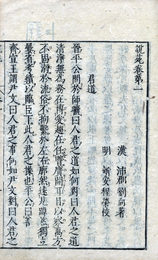 說苑卷第一
漢 沛郡劉向著
明 新安程榮校
君道
晉平公問於師曠曰人君之道如何對曰人君之道
清淨無為務在博愛趨在任賢廣開耳目以察萬方
不固溺於流俗不拘繫於左右廓然遠見踔然獨立
屢省考績以臨臣下此人君之操也平公曰善
齊宣王謂尹文曰人君之事何如尹文對曰人君之